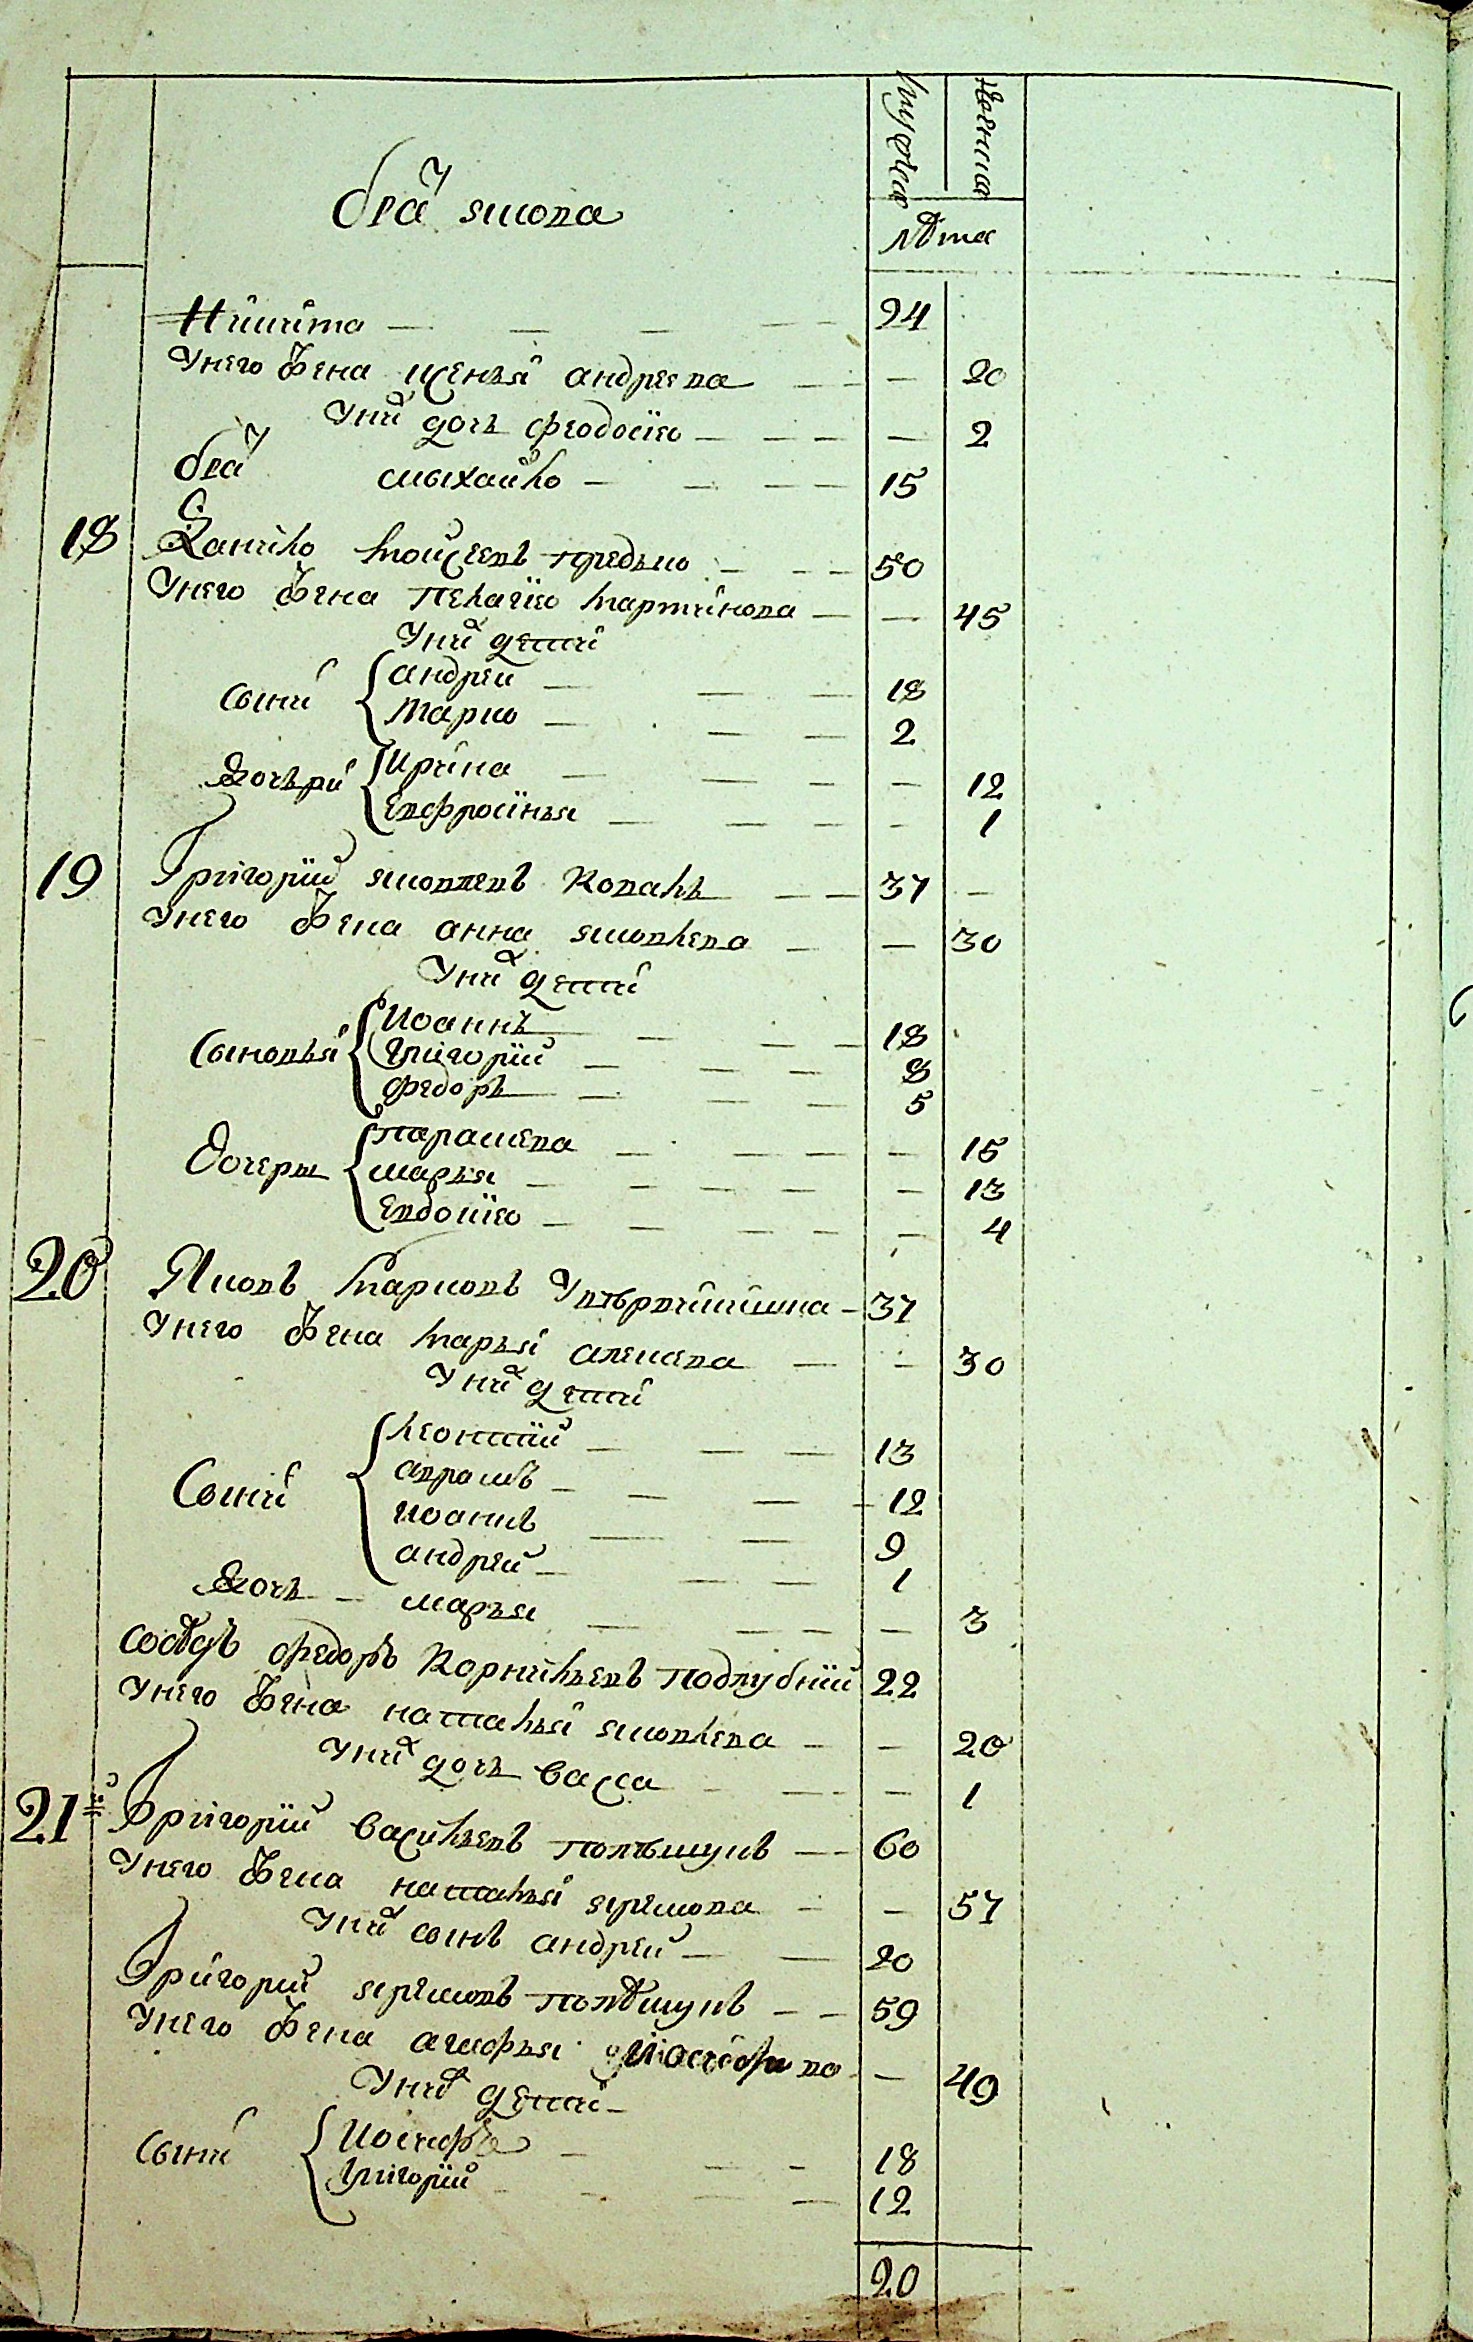 мужеска женска
лѣта
брат якова
Никита 24
У него жена ксенья андреева 20
У них дочь феодосия 2
брат михайло 15
18 Данило Моисеевъ предко 50
У него жена Пелагия Мартинова 45
У них дети
Сыни андрей 18
Марко 2
Дочьри Ирина 12
Евфросинья 1
19 Григорий яковлевъ Коваль 37
У него жена анна яковлева 30
У них дети
Сыновья Иоаннъ 18
григорий 8
федоръ 5
Дочеры параскева 15
марья 13
Евдокия 4
20 Яковъ Марковъ 37
У него жена Марья алексева 30
У них дети
Сыни леонтий 13
аврамъ 12
иоаннъ 9
андрей 1
Дочь марья 3
сосѣдъ федоръ Корнильевъ Поддубний 22
У него жена наталья яковлева 20
У них дочь васса 1
21 Григорий васильевъ 60
У него жена наталья яремова 57
У них сынъ андрей 20
Григорий яремовъ 59
У него жена агафья 49
У них дети
Сыни Иосифъ 18
григорий 12
20